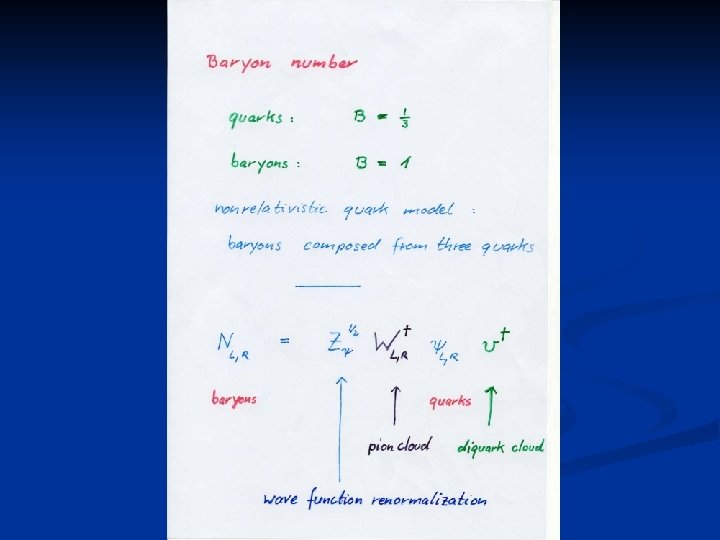 Baryon number
quarks : B = 1/3
baryons : B = 1
nonrelativistic quark model :
baryons composed from three quarks
N_{L,R} = Z_ψ^{1/2} W_{L,R}^† ψ_{L,R} v^†
baryons quarks
pion cloud diquark cloud
wave function renormalization